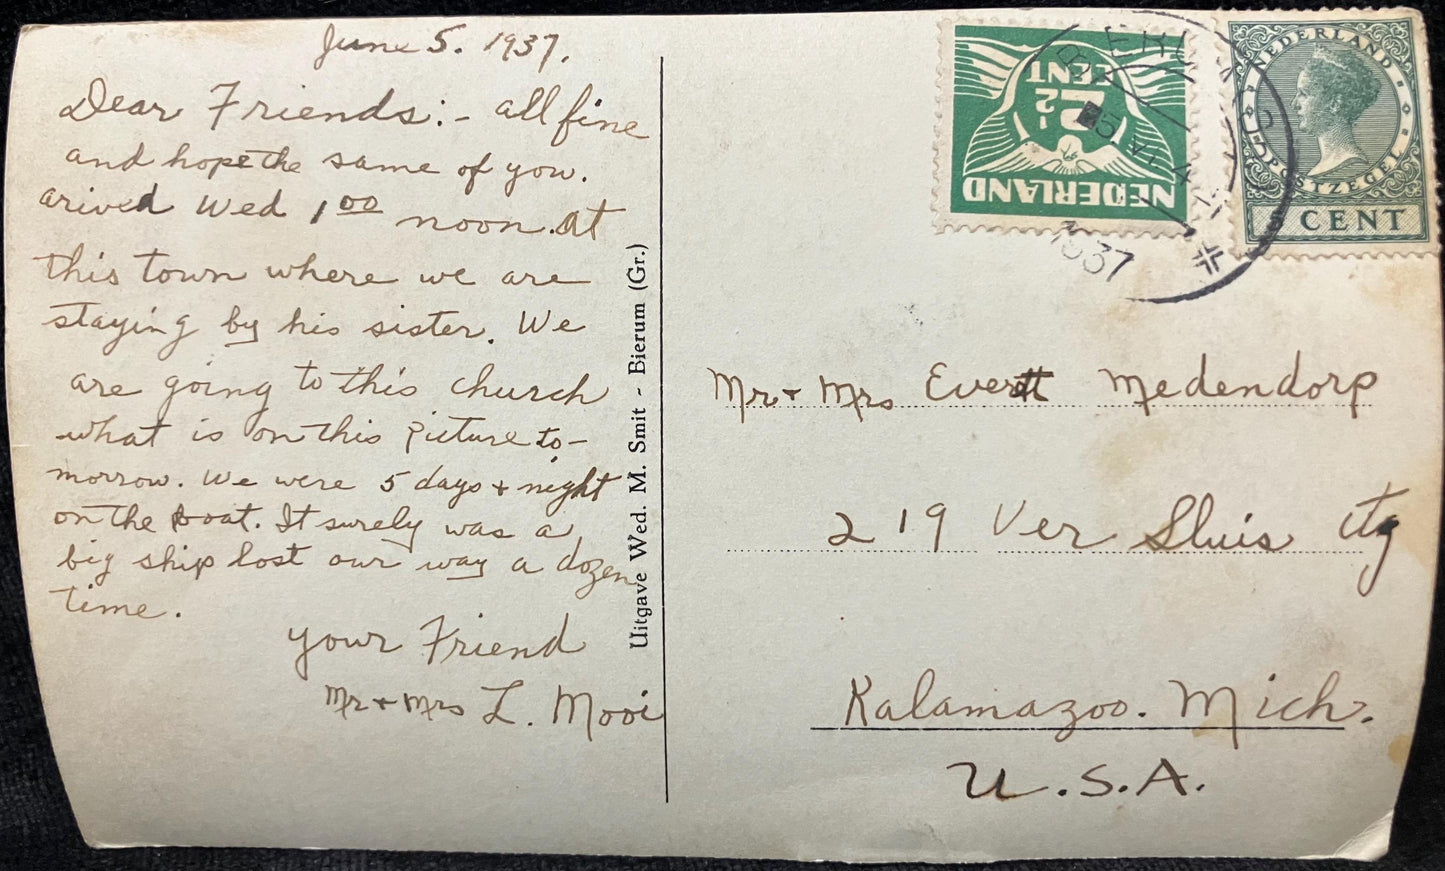 June 5. 1937.
Dear Friends:- all fine
and hope the same of you.
arived Wed 1 00 noon. At
this town where we are
staying by his sister. We
are going to this church
what is on this picture to-
morrow. We were 5 days + night
on the boat. It surely was a
big ship lost our way a dozen
time.
your Friend
Mr + Mrs L. Mooi
Uitgave Wed. M. Smit - Bierum (Gr.)
NEDERLAND
2½
CENT
NEDERLAND
POSTZEGEL
CENT
1937
Mr + Mrs Evertt Medendorp
219 Ver Sluis
Kalamazoo. Mich.
U.S.A.